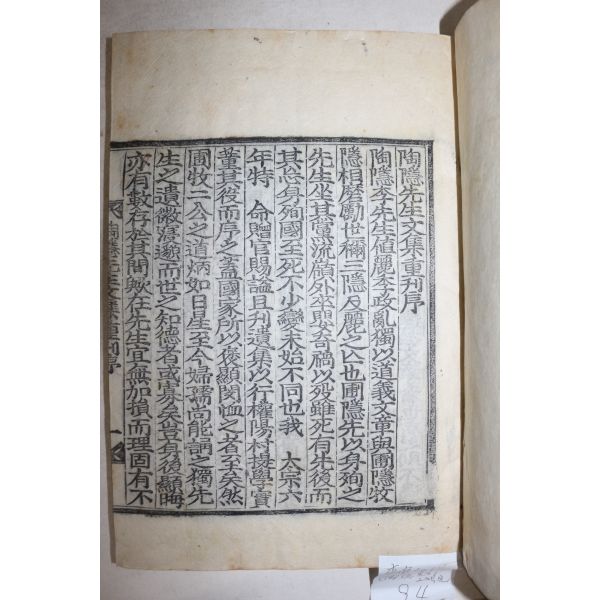 陶隱先生文集重刊序
陶隱李先生値麗季政亂獨以道義文章與圃隱牧
隱相磨勵世稱三隱及麗之亡也圃隱先以身殉之
先生坐其黨流嶺外卒嬰奇禍以歿雖死有先後而
其忘身殉國至死不少變未始不同也我 太宗六
年特 命贈官賜諡且刊遺集以行權陽村提學實
董其役而序之蓋國家所以褒顯閔恤之者至矣然
圃牧二公之道炳如日星至今婦孺尙能誦之獨先
生之遺徽寢邈而世之知德者或寡矣豈身後顯晦
亦有數存於其間歟在先生宜無加損而理固有不
陶隱先生文集重刊序 一
94